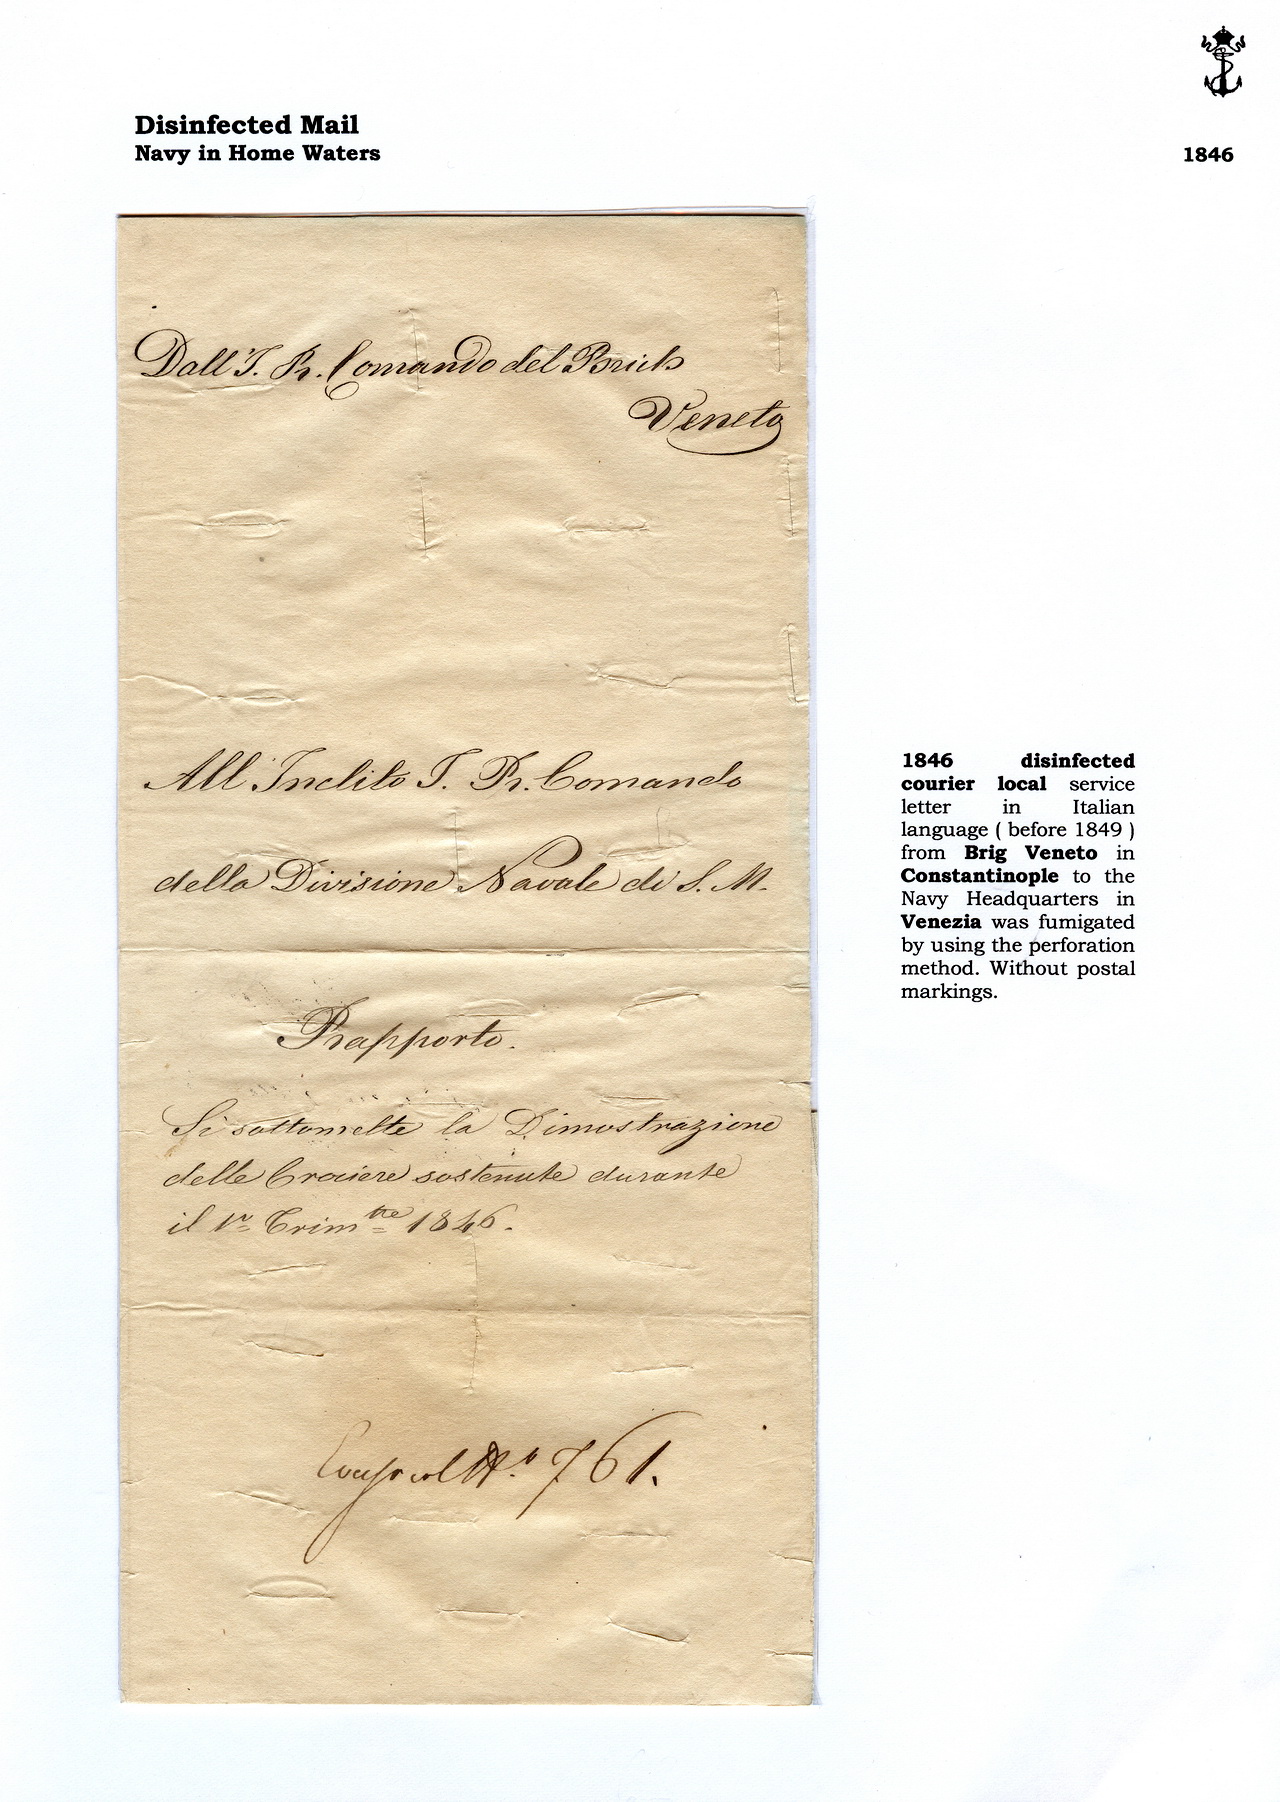 Disinfected Mail
Navy in Home Waters
1846
Dall'I. R. Comando del Brick
Veneto
All'Inclito I. R. Comando
della Divisione Navale di S. M.
Rapporto.
Si sottomette la Dimostrazione
delle Crociere sostenute durante
il 1º Trimtre 1846.
Nº 761.
1846 disinfected
courier local service
letter in Italian
language ( before 1849 )
from Brig Veneto in
Constantinople to the
Navy Headquarters in
Venezia was fumigated
by using the perforation
method. Without postal
markings.